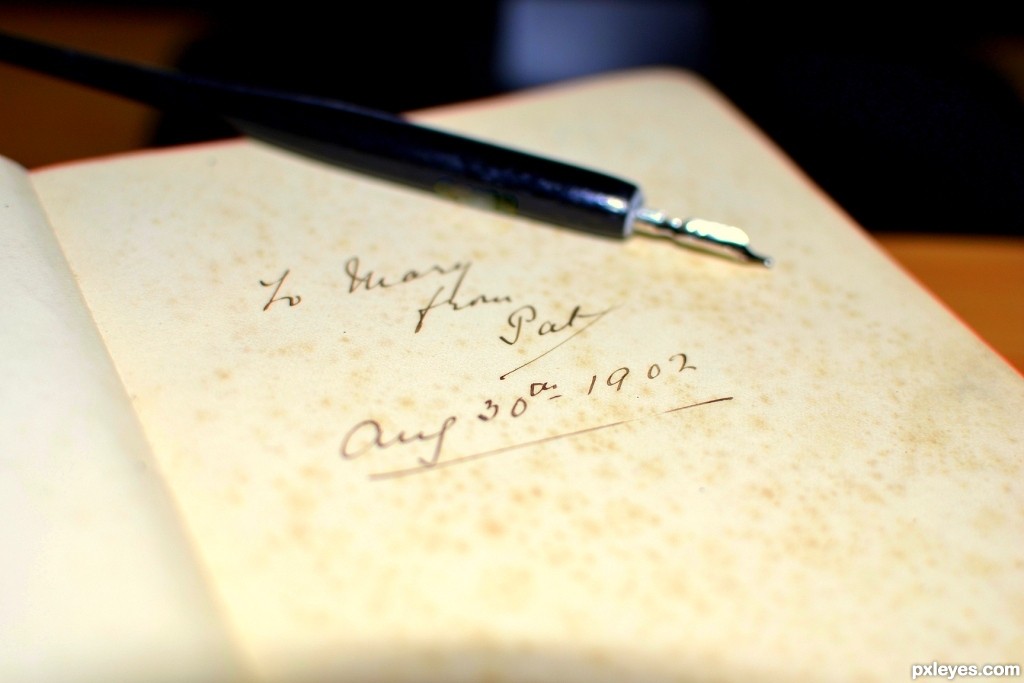 To Mary
from
Pat
Aug 30th 1902
pxleyes.com